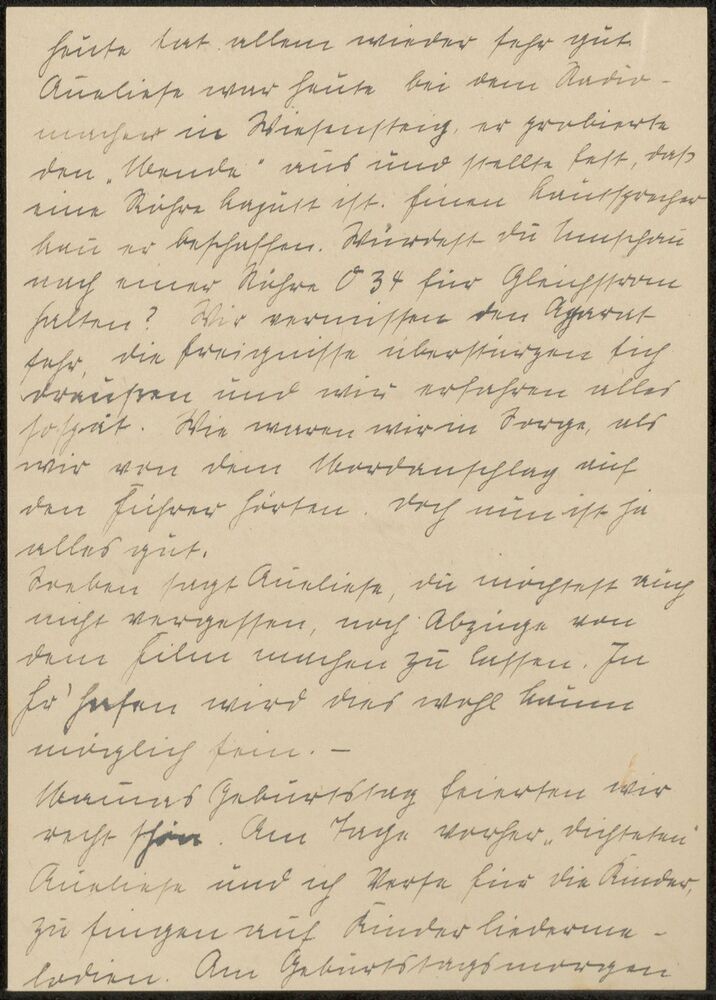 heute tat allem wieder sehr gut.
Anneliese war heute bei dem Radio-
macher in Wiesensteig, er probierte
den „Mende“ aus und stellte fest, daß
eine Röhre kaputt ist. Einen Lautsprecher
kann er beschaffen. Würdest du Umschau
nach einer Röhre O 34 für Gleichstrom
halten? Wir vermissen den Apparat
sehr, die Ereignisse überstürzen sich
draußen und wir erfahren alles
so spät. Wie waren wir in Sorge, als
wir von dem Mordanschlag auf
den Führer hörten. Doch nun ist ja
alles gut.
Soeben sagt Anneliese, du möchtest auch
nicht vergessen, noch Abzüge von
dem Film machen zu lassen. In
Fr'hafen wird dies wohl kaum
möglich sein. –
Mamas Geburtstag feierten wir
recht schön. Am Tage vorher „dichteten“
Anneliese und ich Verse für die Kinder,
zu singen auf Kinderliederme-
lodien. Am Geburtstagsmorgen